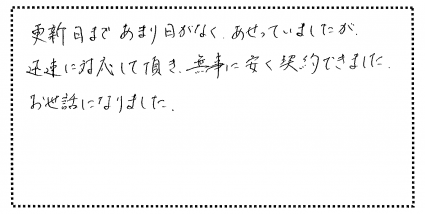 更新日まであまり日がなく、あせっていましたが、
迅速に対応して頂き、無事に安く契約できました。
お世話になりました。